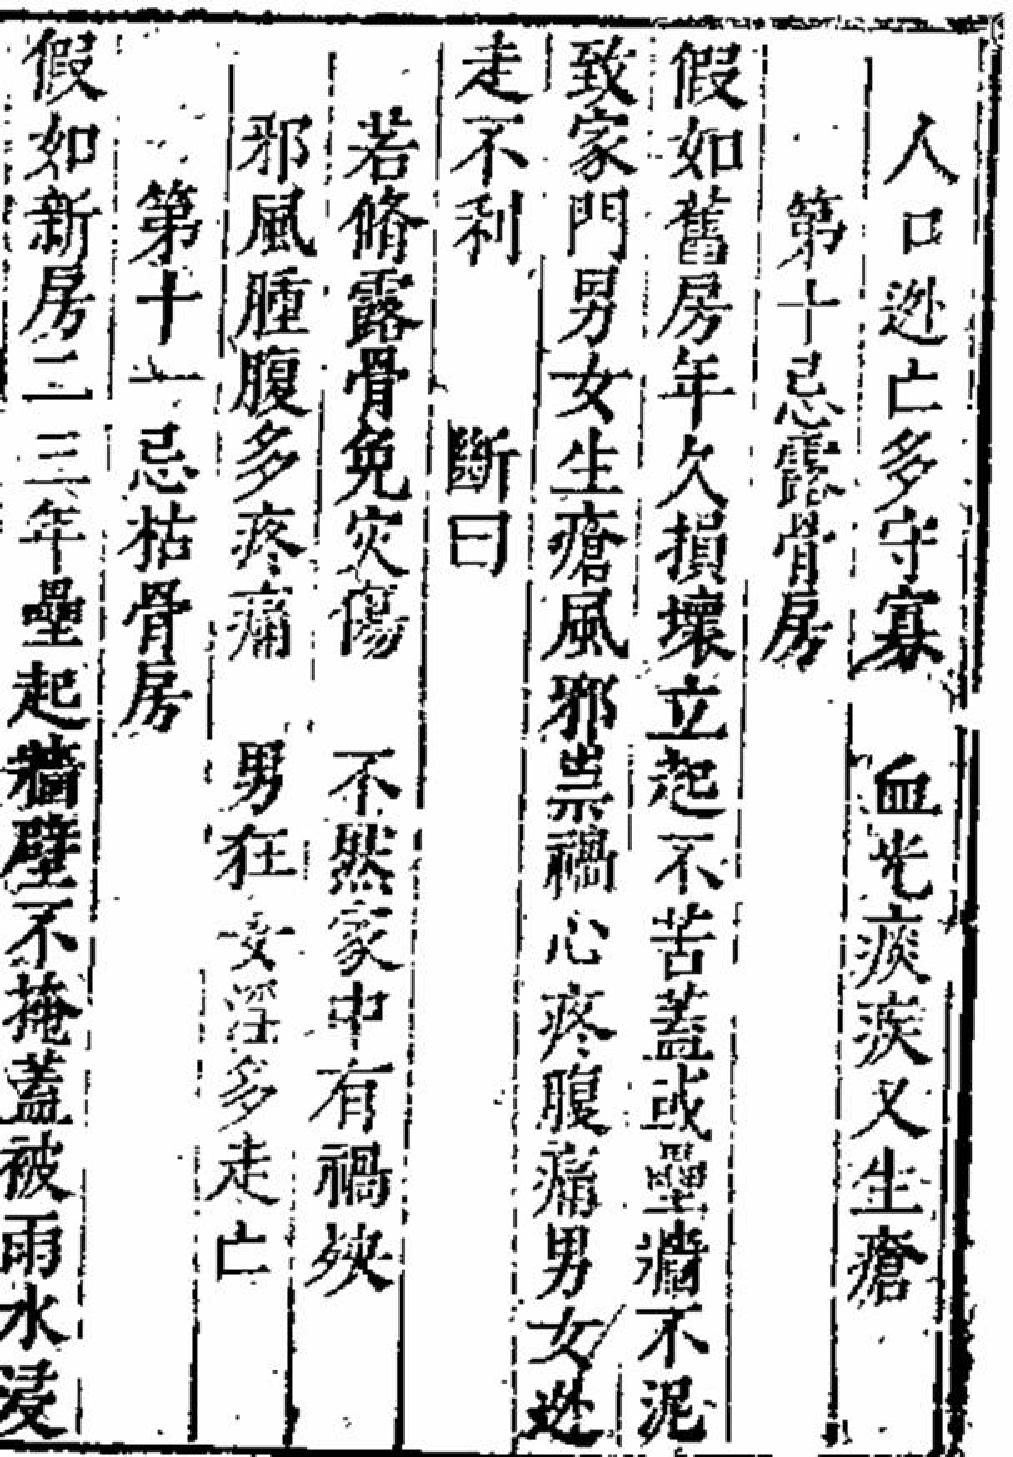 人口迯亡多守寡　血光痰疾又生瘡
第十忌露骨房
假如舊房年久損壞立起不苫蓋或壘墻不泥
致家門男女生瘡風邪祟禍心疼腹痛男女迯
走不利　　斷曰
若脩露骨免灾傷　不然家中有禍殃
邪風腫腹多疼痛　男狂女淫多走亡
第十一忌枯骨房
假如新房二三年壘起牆壁不掩蓋被雨水浸